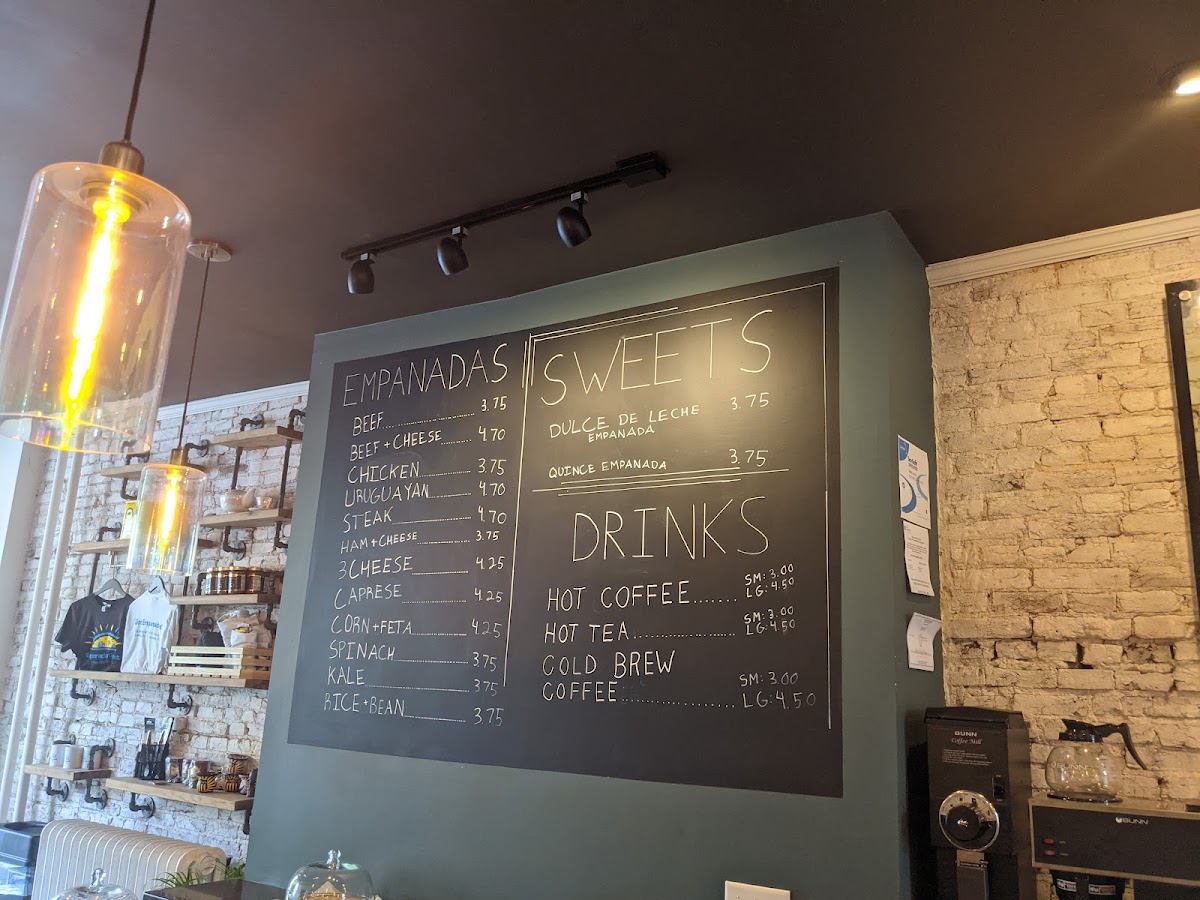 EMPANADAS
BEEF 3.75
BEEF + CHEESE 4.70
CHICKEN 3.75
URUGUAYAN 4.70
STEAK 4.70
HAM + CHEESE 3.75
3 CHEESE 4.25
CAPRESE 4.25
CORN + FETA 4.25
SPINACH 3.75
KALE 3.75
RICE + BEAN 3.75
SWEETS
DULCE DE LECHE 3.75
EMPANADA
QUINCE EMPANADA 3.75
DRINKS
HOT COFFEE SM: 3.00
LG: 4.50
HOT TEA SM: 3.00
LG: 4.50
COLD BREW
COFFEE SM: 3.00
LG: 4.50
BUNN
Coffee Mill
BUNN